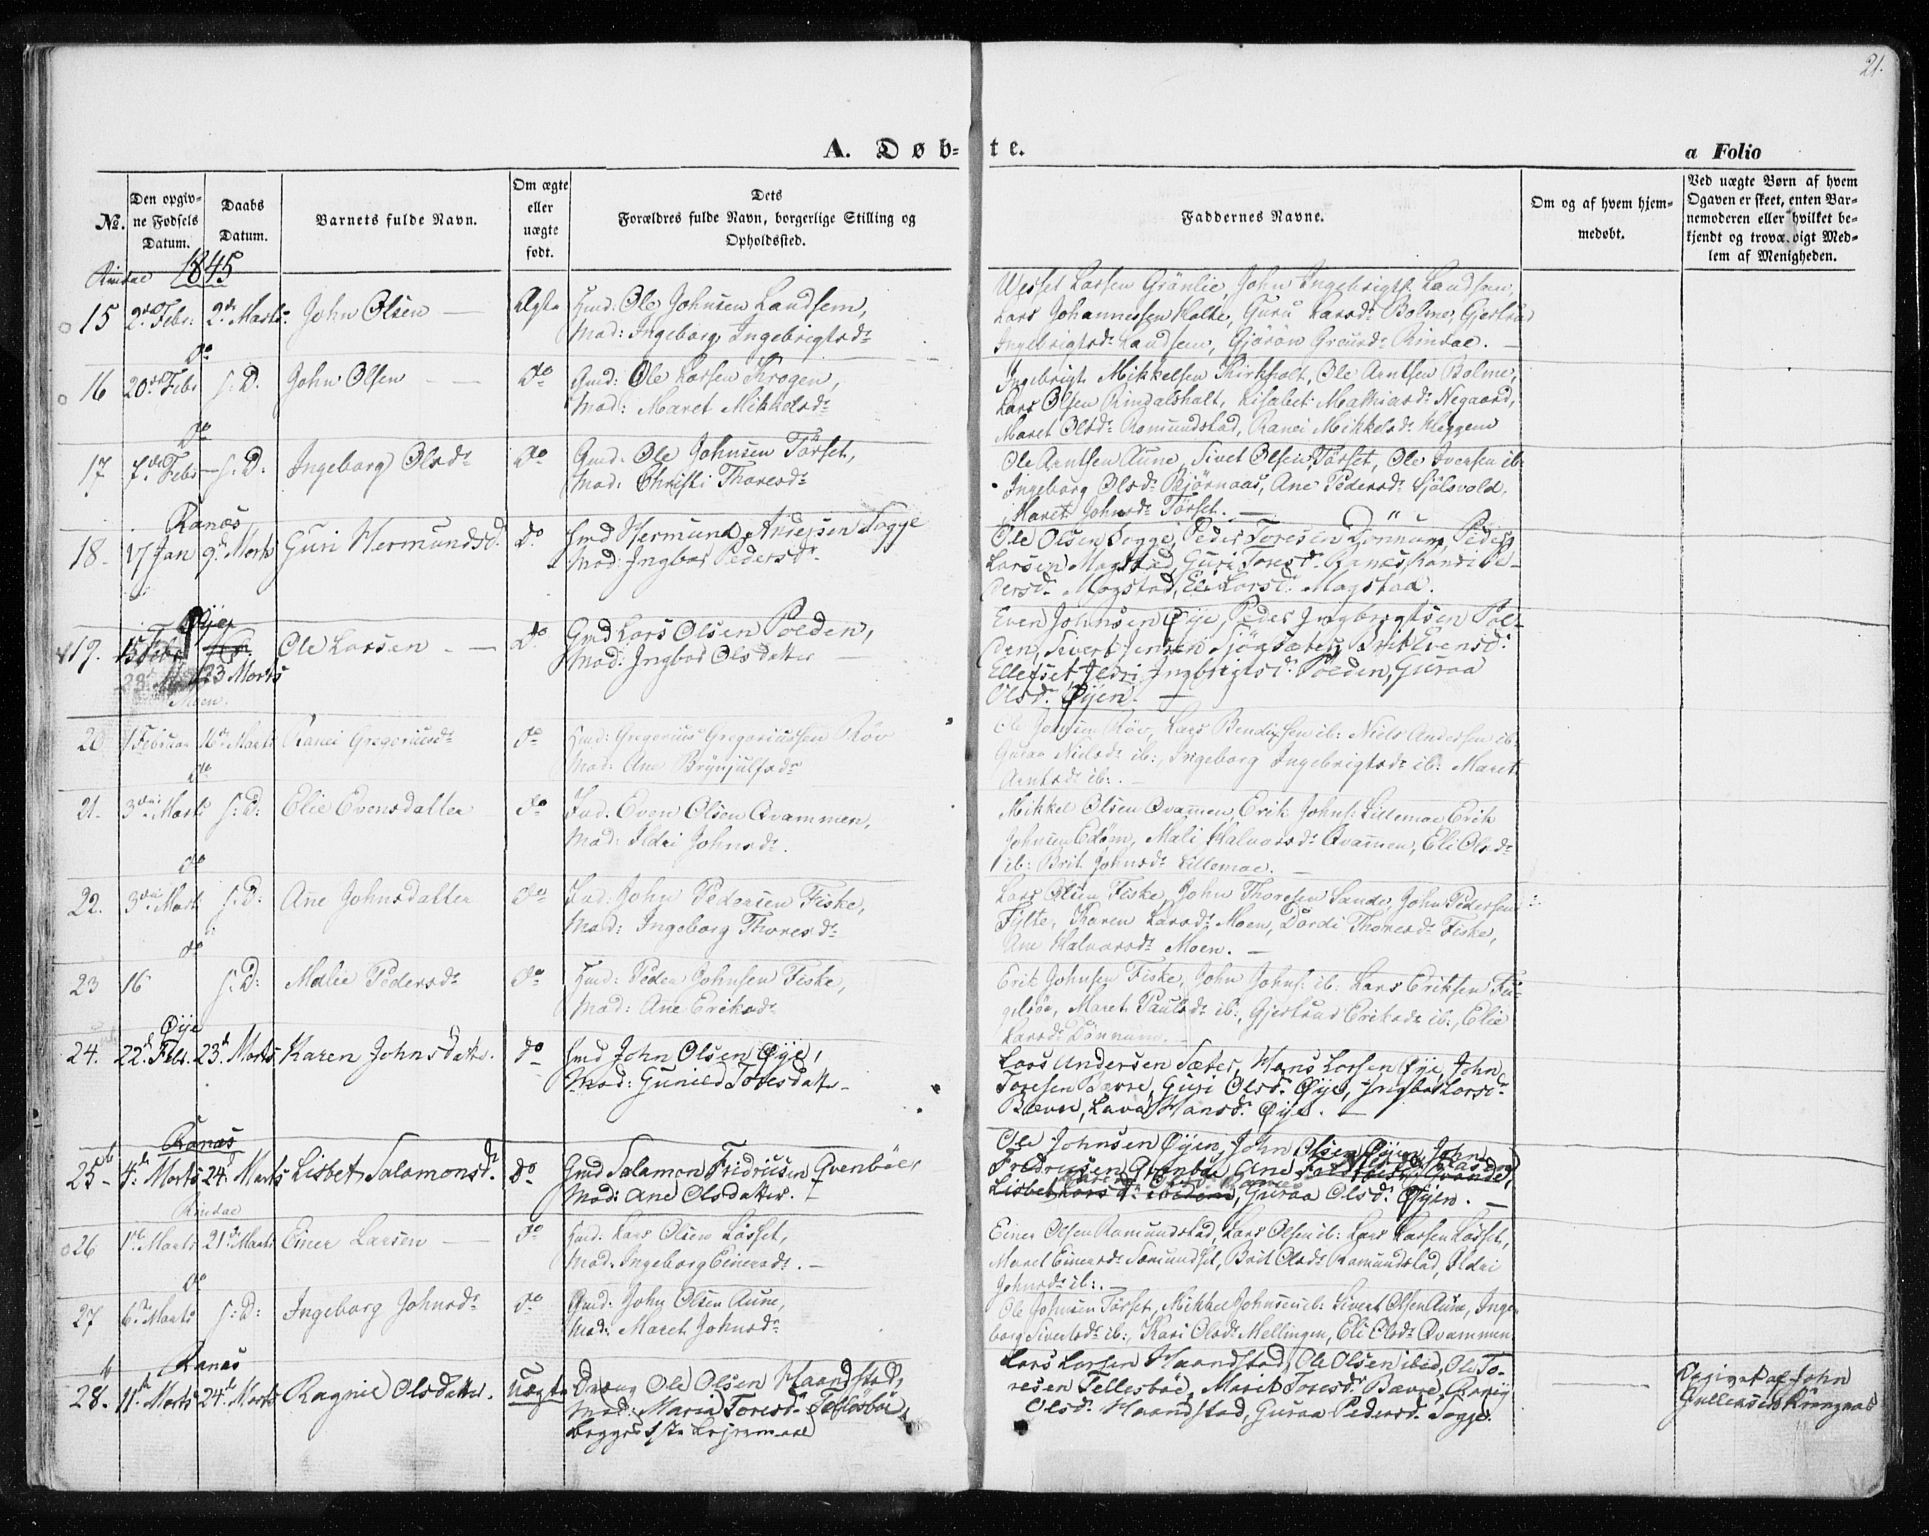 21.
A. Døb- te.
a Folio
No.
Den opgivne Fødsels Datum.
Daabs Datum.
Barnets fulde Navn.
Om ægte eller uægte født.
Dets Forældres fulde Navn, borgerlige Stilling og Opholdssted.
Faddernes Navne.
Om og af hvem hjemmedøbt.
Ved uægte Børn af hvem Opgaven er skeet, enten Barnemoderen eller hvilket bekjendt og troværdigt Medlem af Menigheden.
Rindal 1845
15 2den Febr: 2den Marts. John Olsen — Ægte Huusmd: Ole Johnsen Landsem,
Mod: Ingeborg Ingebrigtsdr
Wessel Larsen Grönlie, John Ingebrigts. Landsem,
Lars Johannessen Holte, Guru Larsdr Bolme, Gjertrud
Ingebrigtsdr Landsem, Rindal. —
do
16 20de Febr s:D: John Olsen — do Gmd: Ole Larsen Krogen,
Mod: Maret Mikkelsdr
Ingebrigt Mikkelsen Kirkholt, Ole Arntsen Bolme,
Lars Olsen Rindalsholt, Lisabet Mathiasdr Negaard,
Maret Olsdr Romundstad, Ranei Mikkelsdr Heggem
do
17 7de Febr s:D: Ingeborg Olsdr do Gmd: Ole Johnsen Törset,
Mod: Christi Thoresdr
Ole Arntsen Aune, Sivert Olsen Törset, Ole Iversen ib
Ingeborg Olsdr Björnaas, Ane Pedersdr Sjölsvold,
Maret Johnsdr Törset. —
Ranæs
18. 17 Jan 9de Marts Guri Hermundsd. do Hmd Hermund Andersen Togge
Mod: Ingbor Pedersdr
Ole Olsen Togge, Peder Toresen Dönnum, Peder
Larsen Mogstad, Guri Toresd. Ranæs, Randi Pe-
dersd. Mogstad, Eli Larsd. Mogstad.
Øye
19. 15 Febr 23 Marts Ole Larsen — do Gmd Lars Olsen Polden,
Mod: Ingbor Olsdatter —
Even Johnsen Øye, Peder Ingbrigtsen Pol-
den, Sivert Jensen Sjöasæter, Brit Evensd.
Ellefset, Ildri Ingbrigtsd. Polden, Guraa
Olsd. Øyen. —
Moen.
20 1 Februar 16de Marts Ranei Gregoriusdr do Hmd: Gregorius Gregoriussen Röv
Mod: Ane Brynjulfsdr
Ole Johnsen Röv, Lars Bendixsen ib: Niels Andersen ib:
Guraa Nielsdr ib:, Ingeborg Ingebrigtsdr ib: Maret
Arntsdr ib:. —
do
21. 3die Marts s:D: Elie Evensdatter do Ind. Even Olsen Qvammen,
Mod: Ildri Johnsdr.
Mikkel Olsen Qvammen, Erik Johns: Lillemoe Erik
Johnsen Edöm, Mali Halvorsdr Qvammen, Eli Olsdr
ib: Brit Johnsdr Lillemoe. —
do
22. 3die Marts s:D: Ane Johnsdatter do Ind: John Pedersen Fiske,
Mod: Ingeborg Thoresdr
Lars Olsen Fiske, John Thoresen Sande, John Pedersen
Fylte, Karen Larsdr Moen, Dordi Thoresdr Fiske,
Ane Halvorsdr Moen. —
do
23 16 s:D: Malie Pedersdr do Hmd: Peder Johnsen Fiske,
Mod: Ane Eriksdr
Erik Johnsen Fiske, John Johns: ib: Lars Eriksen Fu-
gelsöe, Maret Paulsdr ib:, Gjertrud Eriksdr ib:, Elie
Larsdr Dönnum.
Øye
24. 22de Febr. 23de Marts Karen Johnsdatter. do Hmd John Olsen Øye,
Mod: Gunild Toresdatter —
Lars Andersen Sæter, Hans Larsen Øye, John
Toresen Bævre, Guri Olsd. Øye, Ingbor Larsd.
Bævre, Hansd. Øye. —
Ranæs
25 4de Marts 24de Marts Lisbet Salamonsdr do Gmd Salamon Fredriksen Qvenböe,
Mod: Ane Olsdatter. —
Ole Johnsen Øyen, John Olsen Øyen, John
Fredriksen Qvenböe, Ane
Lisbet Larsd. ibidem, Guraa Olsd. Øyen. —
Rindal
26 1ste Marts 21de Marts Einer Larsen — do Hmd: Lars Olsen Lösset,
Mod: Ingeborg Einersdr. —
Einer Olsen Romundstad, Lars Olsen ib: Lars Larsen Lösset,
Maret Einersdr Romundset, Brit Olsdr Romundstad, Ildri
Johnsdr ib:. —
do
27 6te Marts s:D: Ingeborg Johnsdr do Gmd: John Olsen Aune,
Mod: Maret Johnsdr
Ole Johnsen Törset, Mikkel Johnsen ib: Sivert Olsen Aune, Inge-
borg Sivertsdr ib:, Kari Olsdr Mellingen, Eli Olsdr Qvammen
Ranæs
28. 11te Marts 24de Marts Ragnil Olsdatter. Uægte Ole Olsen Haandstad,
Mod: Maria Toresdr Tellesböe,
begges 1ste Leiermaal
Lars Larsen Haandstad, Ole Olsen ibid, Ole To-
resen Tellesböe, Marit Toresdr Bævre,
Olsdr Haandstad, Guraa Pedersd. Togge.
Opgivet af John
Gullensen Kringnæs